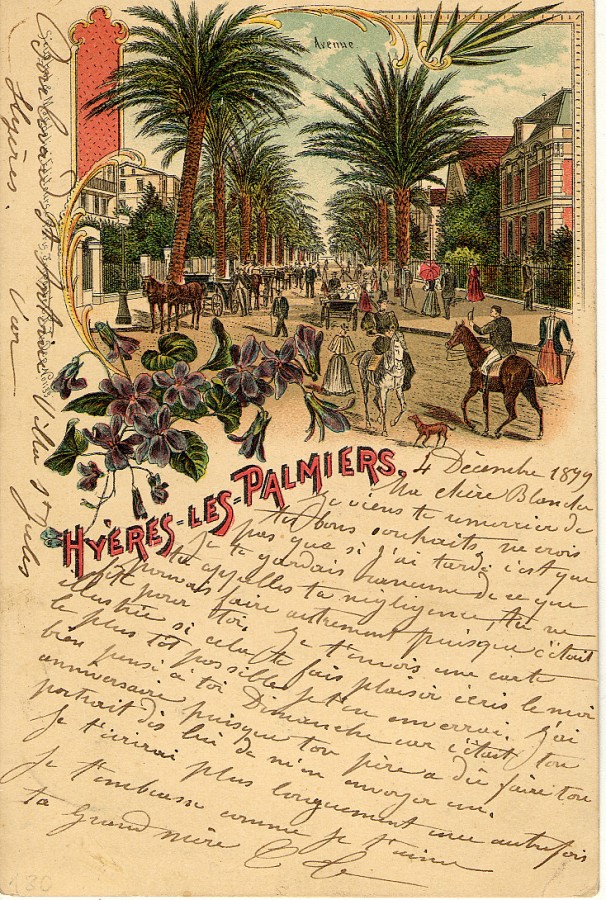 Avenue
HYÈRES-LES-PALMIERS.
4 Décembre 1899
Ma chère Blanche
Je viens te remercier de
tes bons souhaits, ne crois
pas que si j'ai tardé c'est que
je te gardais rancune de ce que
tu appelles ta négligence, tu ne
pouvais faire autrement puisque c'était
pour toi. Je t'envois une carte
illustrée si cela te fais plaisir écris le moi
le plus tôt possible je t'en enverrai. J'ai
bien pensé à toi Dimanche car c'était ton
anniversaire puisque ton père a dû faire ton
portrait dis lui de m'en envoyer un.
Je t'écrirai plus longuement une autre fois
Je t'embrasse comme je t'aime
ta Grand mère
Villa St Jules
Hyères.
Var
130